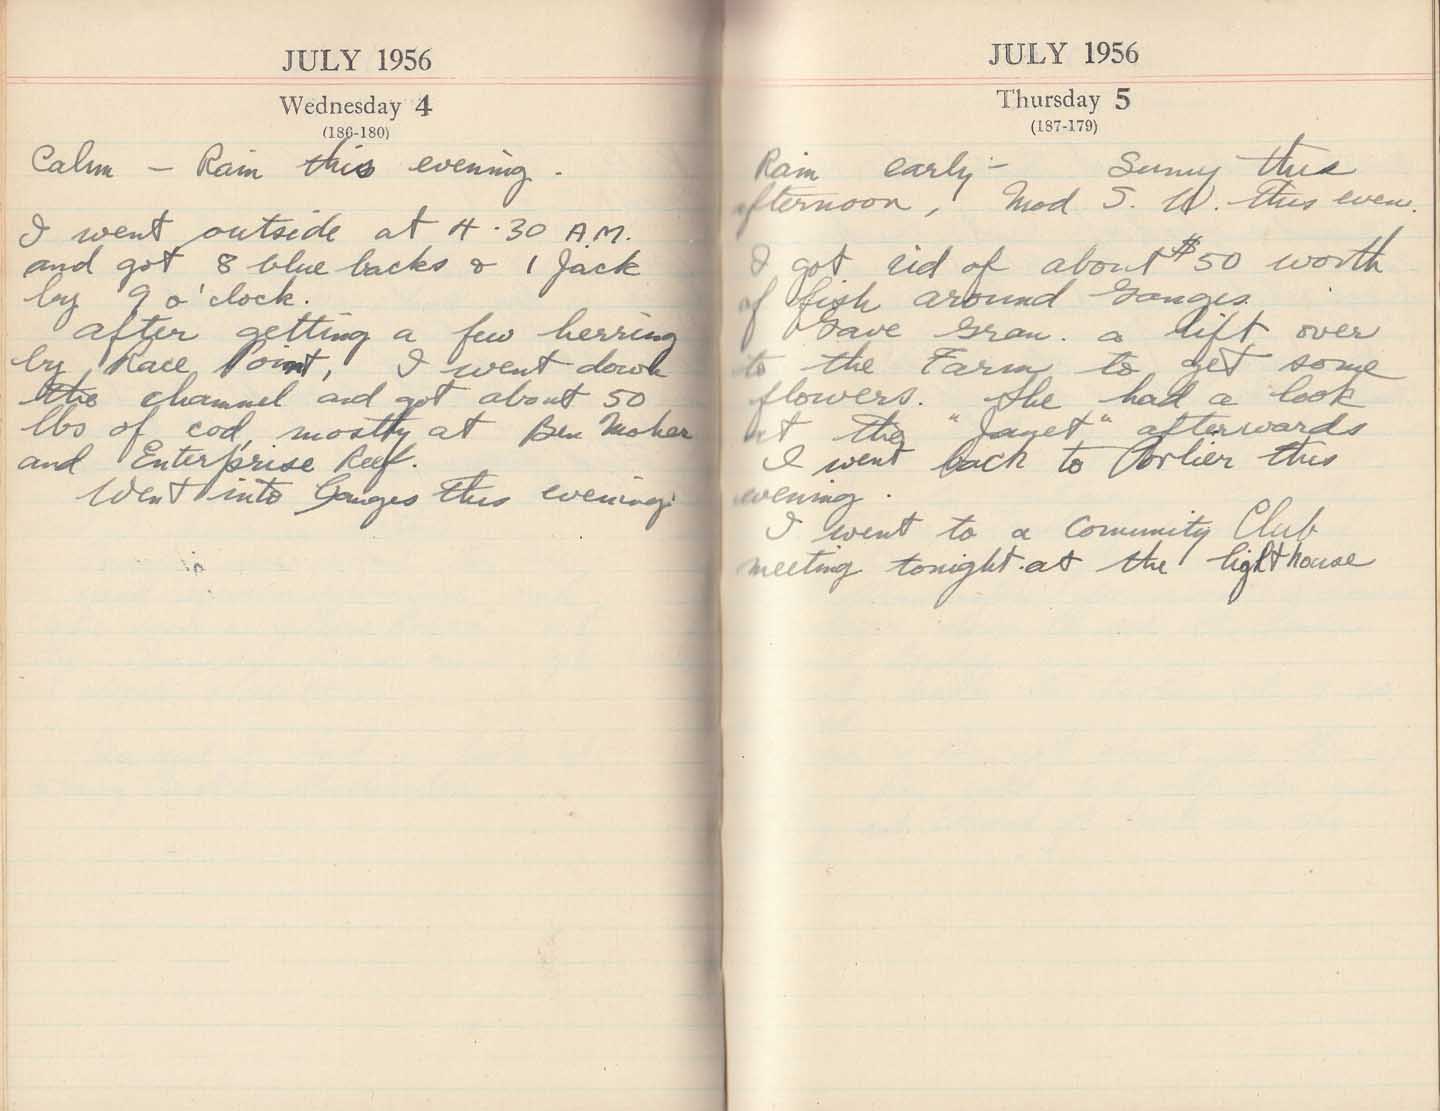 JULY 1956
Wednesday 4
(186-180)
Calm — Rain this evening.
I went outside at 4.30 A.M.
and got 8 blue backs & 1 Jack
by 9 o'clock.
after getting a few herring
by Race Point, I went down
the channel and got about 50
lbs of cod, mostly at Ben Moher
and Enterprise Reef.
Went into Ganges this evening.
JULY 1956
Thursday 5
(187-179)
Rain early — Sunny this
afternoon, Mod S. W. this even.
I got rid of about $50 worth
of fish around Ganges
Gave Gran. a lift over
to the Farm to get some
flowers. She had a look
at the "Janet" afterwards
I went back to Porlier this
evening.
I went to a Comunity Club
meeting tonight at the lighthouse